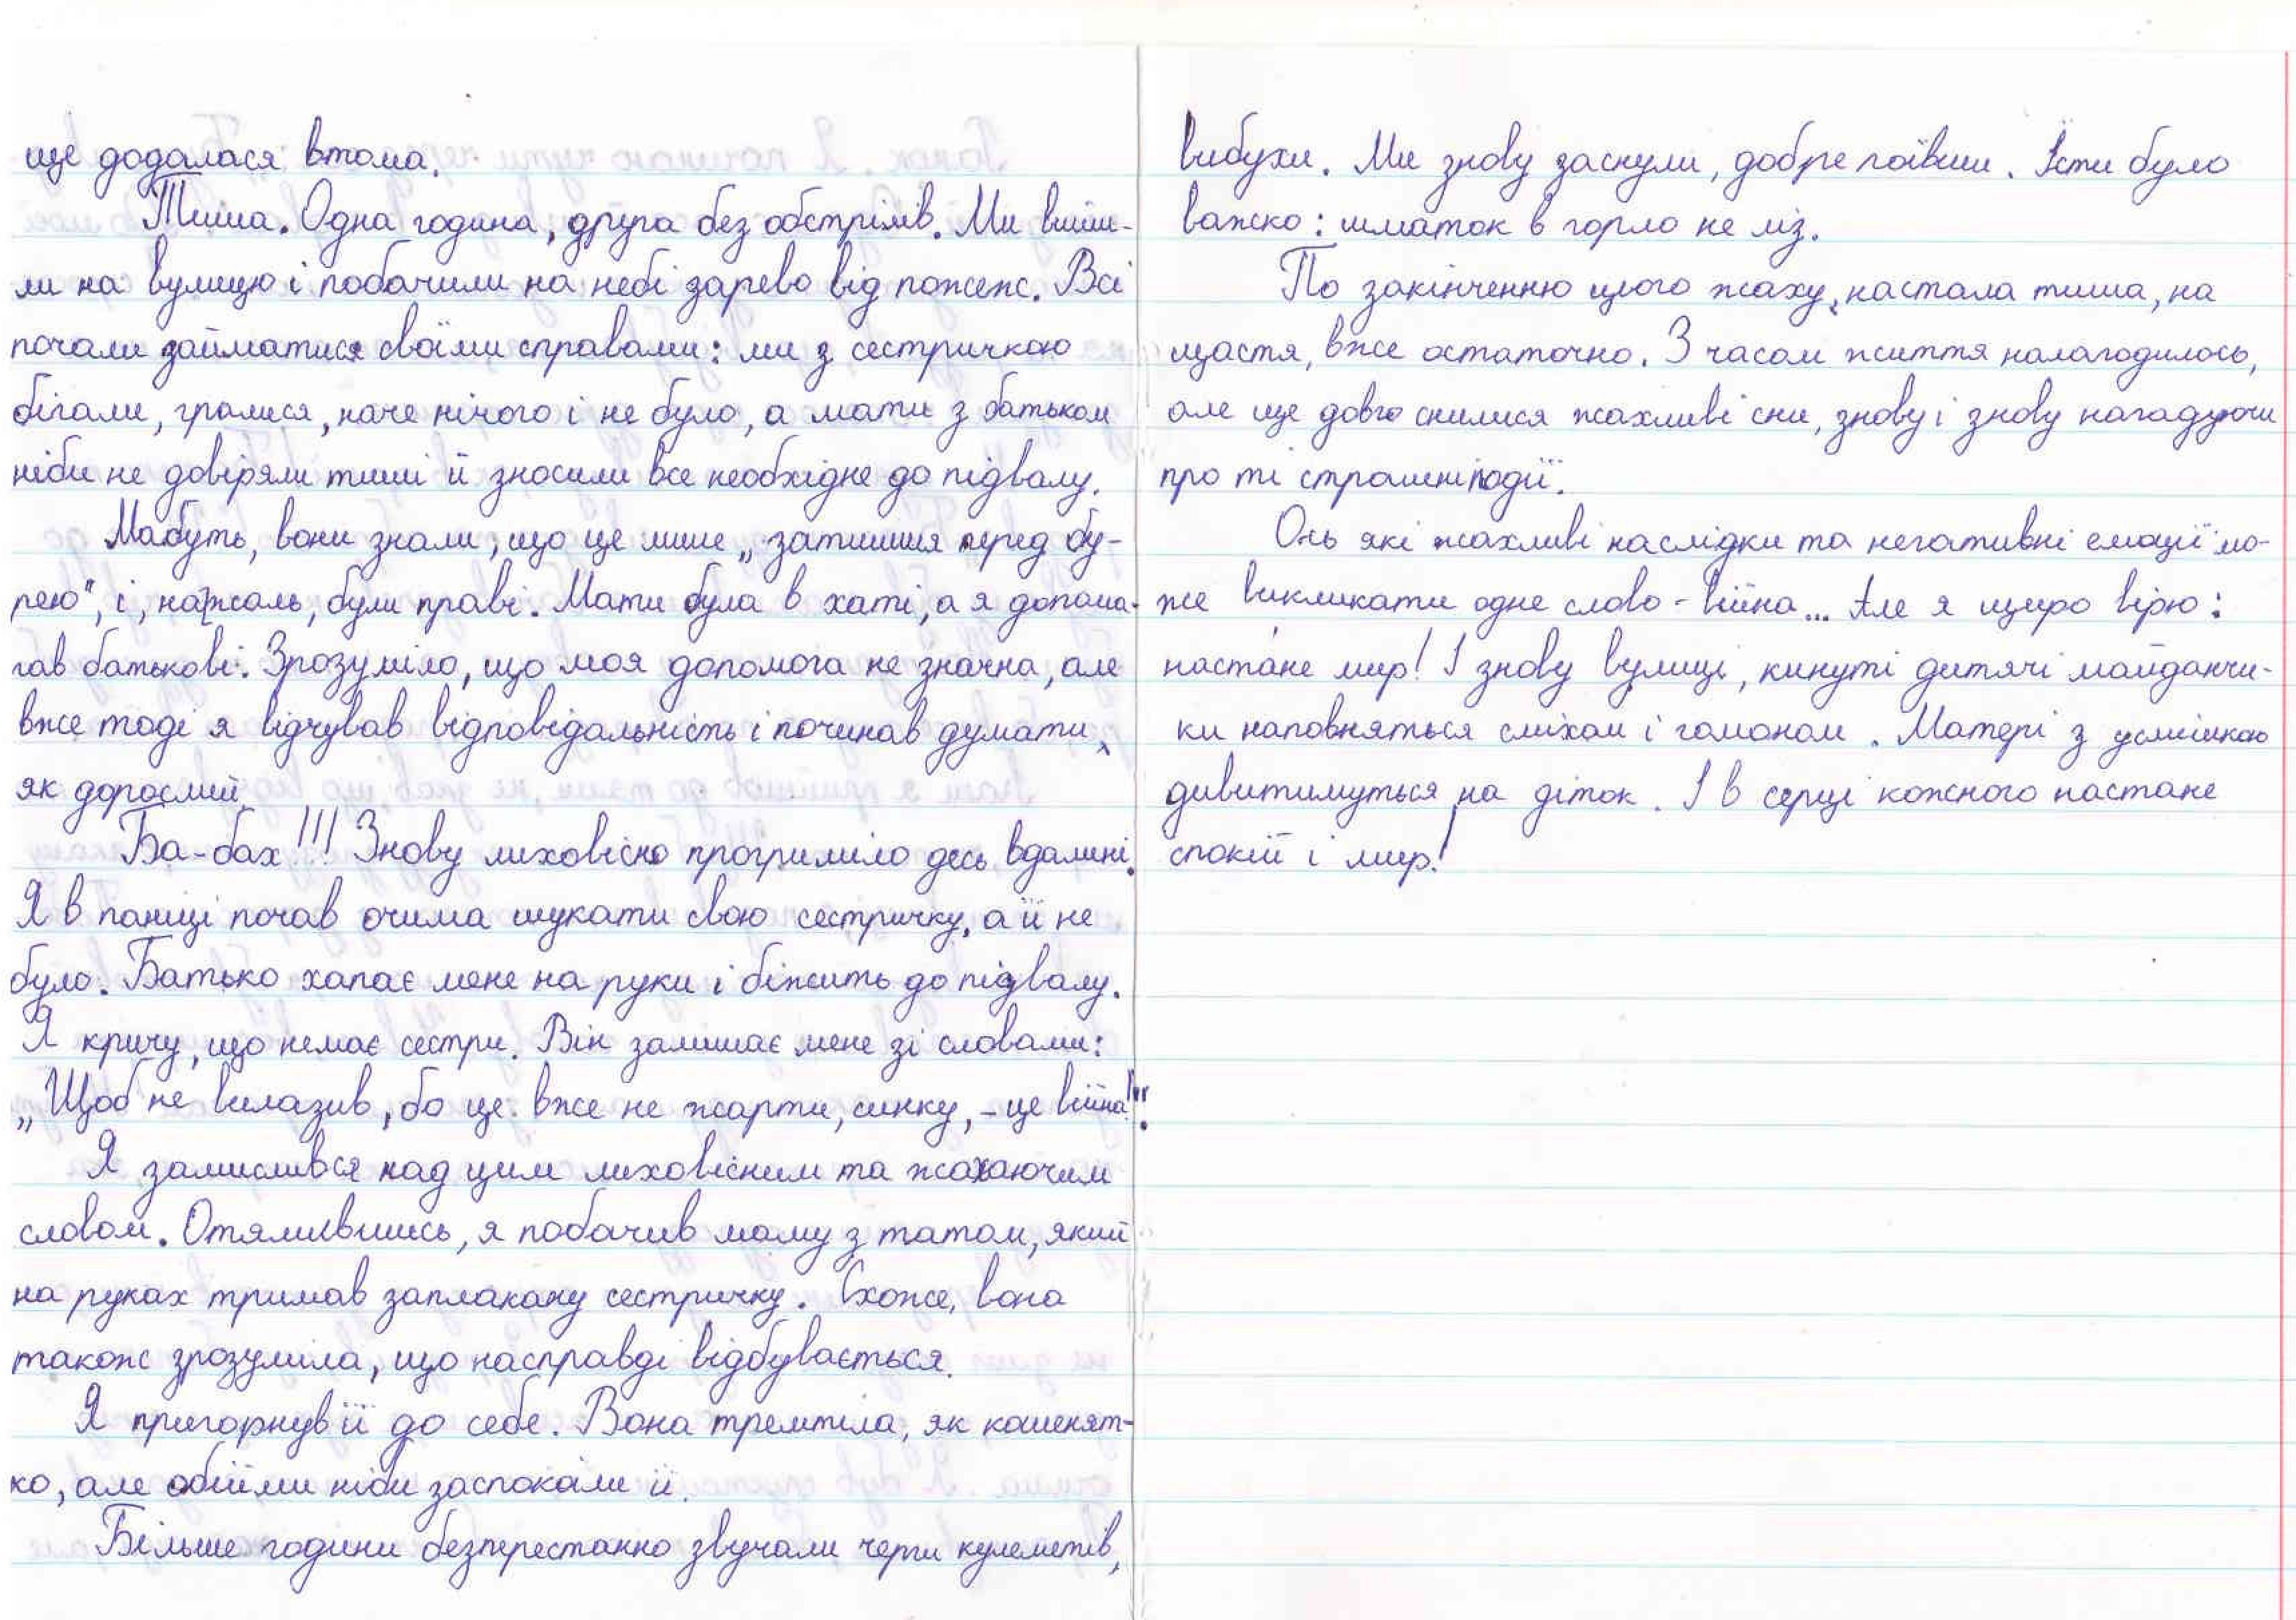 ще додалася втома.
Тиша. Одна година, друга без обстрілів. Ми вийш-
ли на вулицю і побачили на небі зарево від пожеж. Всі
почали займатися своїми справами: ми з сестричкою
бігали, гралися, наче нічого і не було, а мати з батьком
ніби не довіряли тиші й зносили все необхідне до підвалу.
Мабуть, вони знали, що це лише „затишшя перед бу-
рею", і, нажаль, були праві. Мати була в хаті, а я допома-
гав батькові. Зрозуміло, що моя допомога не значна, але
вже тоді я відчував відповідальність і починав думати,
як дорослий.
Ба-бах!!! Знову лиховісно прогриміло десь вдалині.
Я в паніці почав очима шукати свою сестричку, а її не
було. Батько хапає мене на руки і біжить до підвалу.
Я кричу, що немає сестри. Він залишає мене зі словами:
„Щоб не вилазив, бо це вже не жарти, синку, - це війна!".
Я замислився над цим лиховісним та жахаючим
словом. Отямившись, я побачив маму з татом, який
на руках тримав заплакану сестричку. Схоже, вона
також зрозуміла, що насправді відбувається.
Я пригорнув її до себе. Вона тремтіла, як кошенят-
ко, але обійми ніби заспокоїли її.
Більше години безперестанно звучали черги кулеметів,
вибухи. Ми знову заснули, добре поївши. Їсти було
важко: шматок в горло не ліз.
По закінченню цього жаху, настала тиша, на
щастя, вже остаточно. З часом життя налагодилось,
але ще довго снилися жахливі сни, знову і знову нагадуючи
про ті страшні події.
Ось які жахливі наслідки та негативні емоції мо-
же викликати одне слово - війна... Але я щиро вірю:
настане мир! І знову вулиці, кинуті дитячі майданчи-
ки наповняться сміхом і гомоном. Матері з усмішкою
дивитимуться на діток. І в серці кожного настане
спокій і мир!